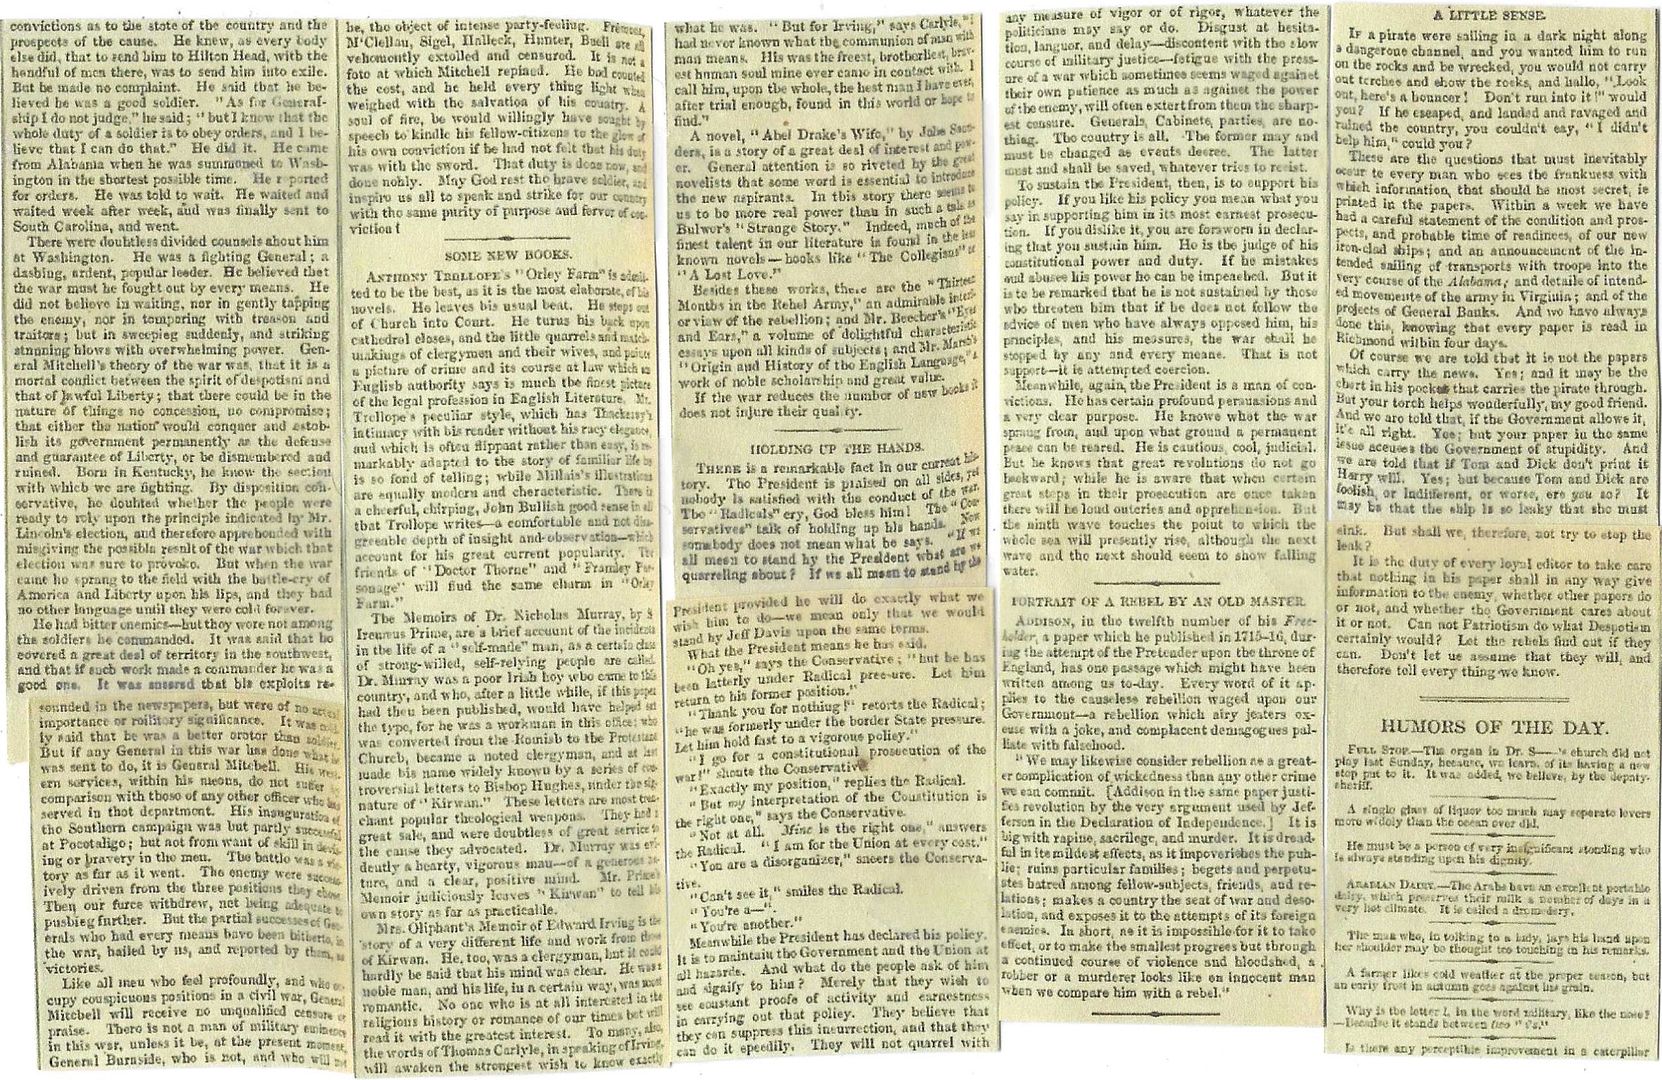 convictions as to the state of the country and the
prospects of the cause. He knew, as every body
else did, that to send him to Hilton Head, with the
handful of men there, was to send him into exile.
But he made no complaint. He said that he be-
lieved he was a good soldier. "As for General-
ship I do not judge," he said; "but I know that the
whole duty of a soldier is to obey orders, and I be-
lieve that I can do that." He did it. He came
from Alabama when he was summoned to Wash-
ington in the shortest possible time. He reported
for orders. He was told to wait. He waited and
waited week after week, and was finally sent to
South Carolina, and went.
There were doubtless divided counsels about him
at Washington. He was a fighting General; a
dashing, ardent, popular leader. He believed that
the war must be fought out by every means. He
did not believe in waiting, nor in gently tapping
the enemy, nor in tampering with treason and
traitors; but in sweeping suddenly, and striking
stunning blows with overwhelming power. Gen-
eral Mitchell's theory of the war was, that it is a
mortal conflict between the spirit of despotism and
that of lawful Liberty; that there could be in the
nature of things no concession, no compromise;
that either the nation would conquer and estab-
lish its government permanently as the defense
and guarantee of Liberty, or be dismembered and
ruined. Born in Kentucky, he knew the section
with which we are fighting. By disposition con-
servative, he doubted whether the people were
ready to rely upon the principle indicated by Mr.
Lincoln's election, and therefore apprehended with
misgiving the possible result of the war which that
election was sure to provoke. But when the war
came he sprang to the field with the battle-cry of
America and Liberty upon his lips, and they had
no other language until they were cold forever.
He had bitter enemies—but they were not among
the soldiers he commanded. It was said that he
covered a great deal of territory in the southwest,
and that if such work made a commander he was a
good one. It was sneered that his exploits re-
sounded in the newspapers, but were of no actual
importance or military significance. It was
ly said that he was a better orator than soldier.
But if any General in this war has done what he
was sent to do, it is General Mitchell. His west-
ern services, within his means, do not suffer by
comparison with those of any other officer who has
served in that department. His inauguration of
the Southern campaign was but partly successful
at Pocotaligo; but not from want of skill in devis-
ing or bravery in the men. The battle was a vic-
tory as far as it went. The enemy were success-
ively driven from the three positions they chose.
Then our force withdrew, not being adequate to
pushing further. But the partial successes of Gen-
erals who had every means have been hitherto, in
the war, hailed by us, and reported by them, as
victories.
Like all men who feel profoundly, and who oc-
cupy conspicuous positions in a civil war, General
Mitchell will receive no unqualified censure or
praise. There is not a man of military eminence
in this war, unless it be, at the present moment,
General Burnside, who is not, and who will not
be, the object of intense party-feeling. Fremont,
M'Clellan, Sigel, Halleck, Hunter, Buell are all
vehemently extolled and censured. It is not a
fate at which Mitchell repined. He had counted
the cost, and he held every thing light when
weighed with the salvation of his country. A
soul of fire, he would willingly have sought by
speech to kindle his fellow-citizens to the glow of
his own conviction if he had not felt that his duty
was with the sword. That duty is done now, and
done nobly. May God rest the brave soldier, and
inspire us all to speak and strike for our country
with the same purity of purpose and fervor of con-
viction!
SOME NEW BOOKS.
ANTHONY TROLLOPE'S "Orley Farm" is admit-
ted to be the best, as it is the most elaborate, of his
novels. He leaves his usual beat. He steps out
of Church into Court. He turns his back upon
cathedral closes, and the little quarrels and match-
makings of clergymen and their wives, and paints
a picture of crime and its course at law which an
English authority says is much the finest picture
of the legal profession in English Literature. Mr.
Trollope's peculiar style, which has Thackeray's
intimacy with his reader without his racy elegance,
and which is often flippant rather than easy, is re-
markably adapted to the story of familiar life he
is so fond of telling; while Millais's illustrations
are equally modern and characteristic. There is
a cheerful, chirping, John Bullish good sense in all
that Trollope writes—a comfortable and not disa-
greeable depth of insight and observation—which
account for his great current popularity. The
friends of "Doctor Thorne" and "Framley Par-
sonage" will find the same charm in "Orley
Farm."
The Memoirs of Dr. Nicholas Murray, by S
Ireneus Prime, are a brief account of the incidents
in the life of a "self-made" man, as a certain class
of strong-willed, self-relying people are called.
Dr. Murray was a poor Irish boy who came to this
country, and who, after a little while, if this paper
had then been published, would have helped set
the type, for he was a workman in this office; who
was converted from the Romish to the Protestant
Church, became a noted clergyman, and at last
made his name widely known by a series of con-
troversial letters to Bishop Hughes, under the sig-
nature of "Kirwan." These letters are most tren-
chant popular theological weapons. They had a
great sale, and were doubtless of great service to
the cause they advocated. Dr. Murray was evi-
dently a hearty, vigorous man—of a generous na-
ture, and a clear, positive mind. Mr. Prime's
Memoir judiciously leaves "Kirwan" to tell his
own story as far as practicable.
Mrs. Oliphant's Memoir of Edward Irving is the
story of a very different life and work from those
of Kirwan. He, too, was a clergyman, but it could
hardly be said that his mind was clear. He was a
noble man, and his life, in a certain way, was most
romantic. No one who is at all interested in the
religious history or romance of our times but will
read it with the greatest interest. To many, also,
the words of Thomas Carlyle, in speaking of Irving,
will awaken the strongest wish to know exactly
what he was. "But for Irving," says Carlyle, "I
had never known what the communion of man with
man means. His was the freest, brotherliest, brav-
est human soul mine ever came in contact with. I
call him, upon the whole, the best man I have ever,
after trial enough, found in this world or hope to
find."
A novel, "Abel Drake's Wife," by John Saun-
ders, is a story of a great deal of interest and pow-
er. General attention is so riveted by the great
novelists that some word is essential to introduce
the new aspirants. In this story there seems to
us to be more real power than in such a tale as
Bulwer's "Strange Story." Indeed, much of the
finest talent in our literature is found in the less
known novels—books like "The Collegians" or
"A Lost Love."
Besides these works, there are the "Thirteen
Months in the Rebel Army," an admirable interi-
or view of the rebellion; and Mr. Beecher's "Eyes
and Ears," a volume of delightful characteristic
essays upon all kinds of subjects; and Mr. Marsh's
"Origin and History of the English Language," a
work of noble scholarship and great value.
If the war reduces the number of new books it
does not injure their quality.
HOLDING UP THE HANDS.
THERE is a remarkable fact in our current his-
tory. The President is praised on all sides, yet
nobody is satisfied with the conduct of the war.
The "Radicals" cry, God bless him! The "Con-
servatives" talk of holding up his hands. Now
somebody does not mean what he says. "If we
all mean to stand by the President what are we
quarreling about? If we all mean to stand by the
President provided he will do exactly what we
wish him to do—we mean only that we would
stand by Jeff Davis upon the same terms.
What the President means he has said.
"Oh yes," says the Conservative; "but he has
been latterly under Radical pressure. Let him
return to his former position."
"Thank you for nothing!" retorts the Radical;
"he was formerly under the border State pressure.
Let him hold fast to a vigorous policy."
"I go for a constitutional prosecution of the
war!" shouts the Conservative.
"Exactly my position," replies the Radical.
"But my interpretation of the Constitution is
the right one," says the Conservative.
"Not at all. Mine is the right one," answers
the Radical. "I am for the Union at every cost."
"You are a disorganizer," sneers the Conserva-
tive.
"Can't see it," smiles the Radical.
"You're a—".
"You're another."
Meanwhile the President has declared his policy.
It is to maintain the Government and the Union at
all hazards. And what do the people ask of him
and signify to him? Merely that they wish to
see constant proofs of activity and earnestness
in carrying out that policy. They believe that
they can suppress this insurrection, and that they
can do it speedily. They will not quarrel with
any measure of vigor or of rigor, whatever the
politicians may say or do. Disgust at hesita-
tion, languor, and delay—discontent with the slow
course of military justice—fatigue with the press-
ure of a war which sometimes seems waged against
their own patience as much as against the power
of the enemy, will often extort from them the sharp-
est censure. Generals, Cabinets, parties, are no-
thing. The country is all. The former may and
must be changed as events decree. The latter
must and shall be saved, whatever tries to resist.
To sustain the President, then, is to support his
policy. If you like his policy you mean what you
say in supporting him in its most earnest prosecu-
tion. If you dislike it, you are forsworn in declar-
ing that you sustain him. He is the judge of his
constitutional power and duty. If he mistakes
and abuses his power he can be impeached. But it
is to be remarked that he is not sustained by those
who threaten him that if he does not follow the
advice of men who have always opposed him, his
principles, and his measures, the war shall be
stopped by any and every means. That is not
support—it is attempted coercion.
Meanwhile, again, the President is a man of con-
victions. He has certain profound persuasions and
a very clear purpose. He knows what the war
sprang from, and upon what ground a permanent
peace can be reared. He is cautious, cool, judicial.
But he knows that great revolutions do not go
backward; while he is aware that when certain
great steps in their prosecution are once taken
there will be loud outcries and apprehension. But
the ninth wave touches the point to which the
whole sea will presently rise, although the next
wave and the next should seem to show falling
water.
PORTRAIT OF A REBEL BY AN OLD MASTER.
ADDISON, in the twelfth number of his Free-
holder, a paper which he published in 1715-16, dur-
ing the attempt of the Pretender upon the throne of
England, has one passage which might have been
written among us to-day. Every word of it ap-
plies to the causeless rebellion waged upon our
Government—a rebellion which airy jesters ex-
cuse with a joke, and complacent demagogues pal-
liate with falsehood.
"We may likewise consider rebellion as a great-
er complication of wickedness than any other crime
we can commit. [Addison in the same paper justi-
fies revolution by the very argument used by Jef-
ferson in the Declaration of Independence.] It is
big with rapine, sacrilege, and murder. It is dread-
ful in its mildest effects, as it impoverishes the pub-
lic; ruins particular families; begets and perpetu-
ates hatred among fellow-subjects, friends, and re-
lations; makes a country the seat of war and deso-
lation, and exposes it to the attempts of its foreign
enemies. In short, as it is impossible for it to take
effect, or to make the smallest progress but through
a continued course of violence and bloodshed, a
robber or a murderer looks like an innocent man
when we compare him with a rebel."
A LITTLE SENSE.
IF a pirate were sailing in a dark night along
a dangerous channel, and you wanted him to run
on the rocks and be wrecked, you would not carry
out torches and show the rocks, and hallo, "Look
out, here's a bouncer! Don't run into it!" would
you? If he escaped, and landed and ravaged and
ruined the country, you couldn't say, "I didn't
help him," could you?
These are the questions that must inevitably
occur to every man who sees the frankness with
which information, that should be most secret, is
printed in the papers. Within a week we have
had a careful statement of the condition and pros-
pects, and probable time of readiness, of our new
iron-clad ships; and an announcement of the in-
tended sailing of transports with troops into the
very course of the Alabama; and details of intend-
ed movements of the army in Virginia; and of the
projects of General Banks. And we have always
done this, knowing that every paper is read in
Richmond within four days.
Of course we are told that it is not the papers
which carry the news. Yes; and it may be the
chart in his pocket that carries the pirate through.
But your torch helps wonderfully, my good friend.
And we are told that, if the Government allows it,
it's all right. Yes; but your paper in the same
issue accuses the Government of stupidity. And
we are told that if Tom and Dick don't print it
Harry will. Yes; but because Tom and Dick are
foolish, or indifferent, or worse, are you so? It
may be that the ship is so leaky that she must
sink. But shall we, therefore, not try to stop the
leak?
It is the duty of every loyal editor to take care
that nothing in his paper shall in any way give
information to the enemy, whether other papers do
or not, and whether the Government cares about
it or not. Can not Patriotism do what Despotism
certainly would? Let the rebels find out if they
can. Don't let us assume that they will, and
therefore tell every thing we know.
HUMORS OF THE DAY.
FULL STOP.—The organ in Dr. S——'s church did not
play last Sunday, because, we learn, of its having a new
stop put to it. It was added, we believe, by the deputy-
sheriff.
A single glass of liquor too much may separate lovers
more widely than the ocean ever did.
He must be a person of very insignificant standing who
is always standing upon his dignity.
ARABIAN DAIRY.—The Arabs have an excellent portable
dairy, which preserves their milk a number of days in a
very hot climate. It is called a dromedary.
The man who, in talking to a lady, lays his hand upon
her shoulder may be thought too touching in his remarks.
A farmer likes cold weather at the proper season, but
an early frost in autumn goes against his grain.
Why is the letter l, in the word military, like the nose?
—Because it stands between two "i's."
Is there any perceptible improvement in a caterpillar